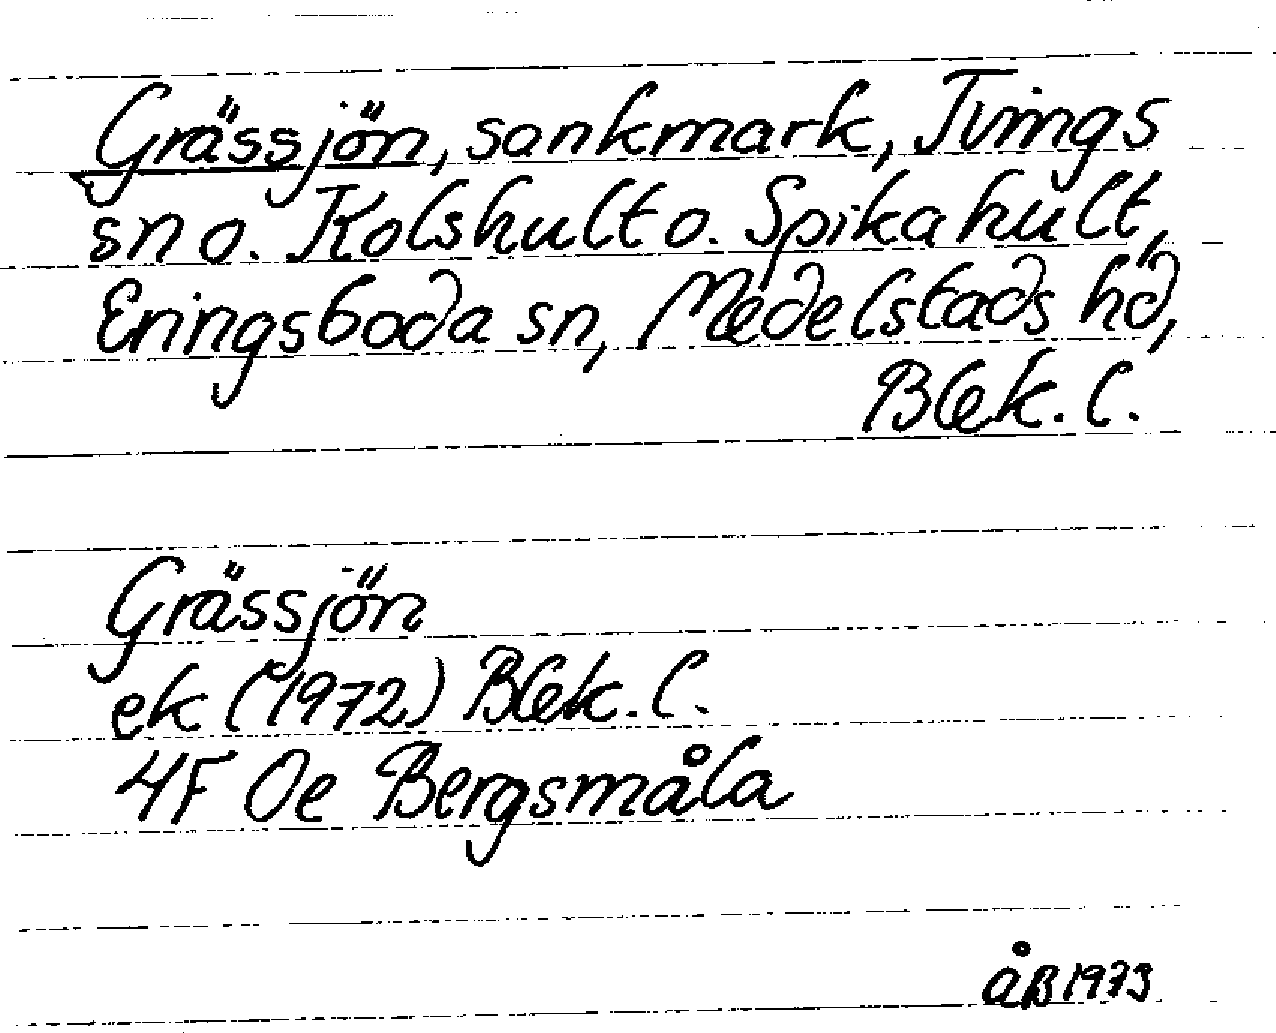 Grässjön, sankmark, Tvings
sn o. Kolshult o. Spikahult,
Eringsboda sn, Medelstads hd,
Blek. l.
Grässjön
ek (1972) Blek. l.
4F 0e Bergsmåla
åB 1973